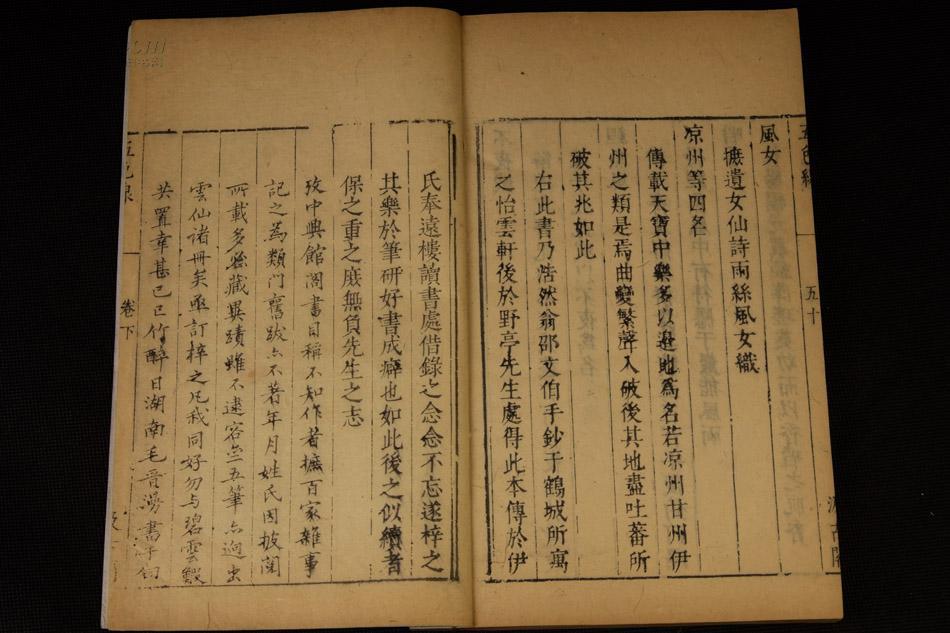 五色線
五十
汲古閣
風女
摭遺女仙詩雨絲風女織
凉州等四名
傳載天寶中樂多以邊地爲名若凉州甘州伊
州之類是焉曲變繁聲入破後其地盡吐蕃所
破其兆如此
右此書乃浩然翁邵文伯手鈔于鶴城所寓
之怡雲軒後於野亭先生處得此本傳於伊
氏奉遠樓讀書處借錄之念念不忘遂梓之
其樂於筆硏好書成癖也如此後之似續者
保之重之庶無負先生之志
攷中興館閣書目稱不知作者摭百家雜事
記之爲類門舊跋亦不著年月姓氏因披閱
所載多祕藏異蹟雖不逮容齋五筆亦迥出
雲仙諸冊矣亟訂梓之凡我同好勿与碧雲騢
共置幸甚己巳竹醉日湖南毛晉漫書
五色線
卷下